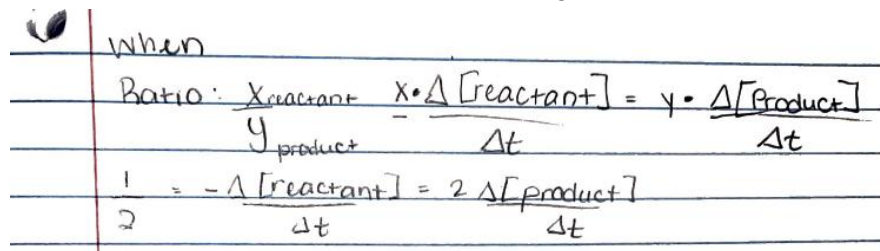 When
Ratio: X reactant / y product X • Δ [reactant] / Δt = y • Δ[Product] / Δt
1 / 2 = - Δ [reactant] / Δt = 2 Δ[product] / Δt